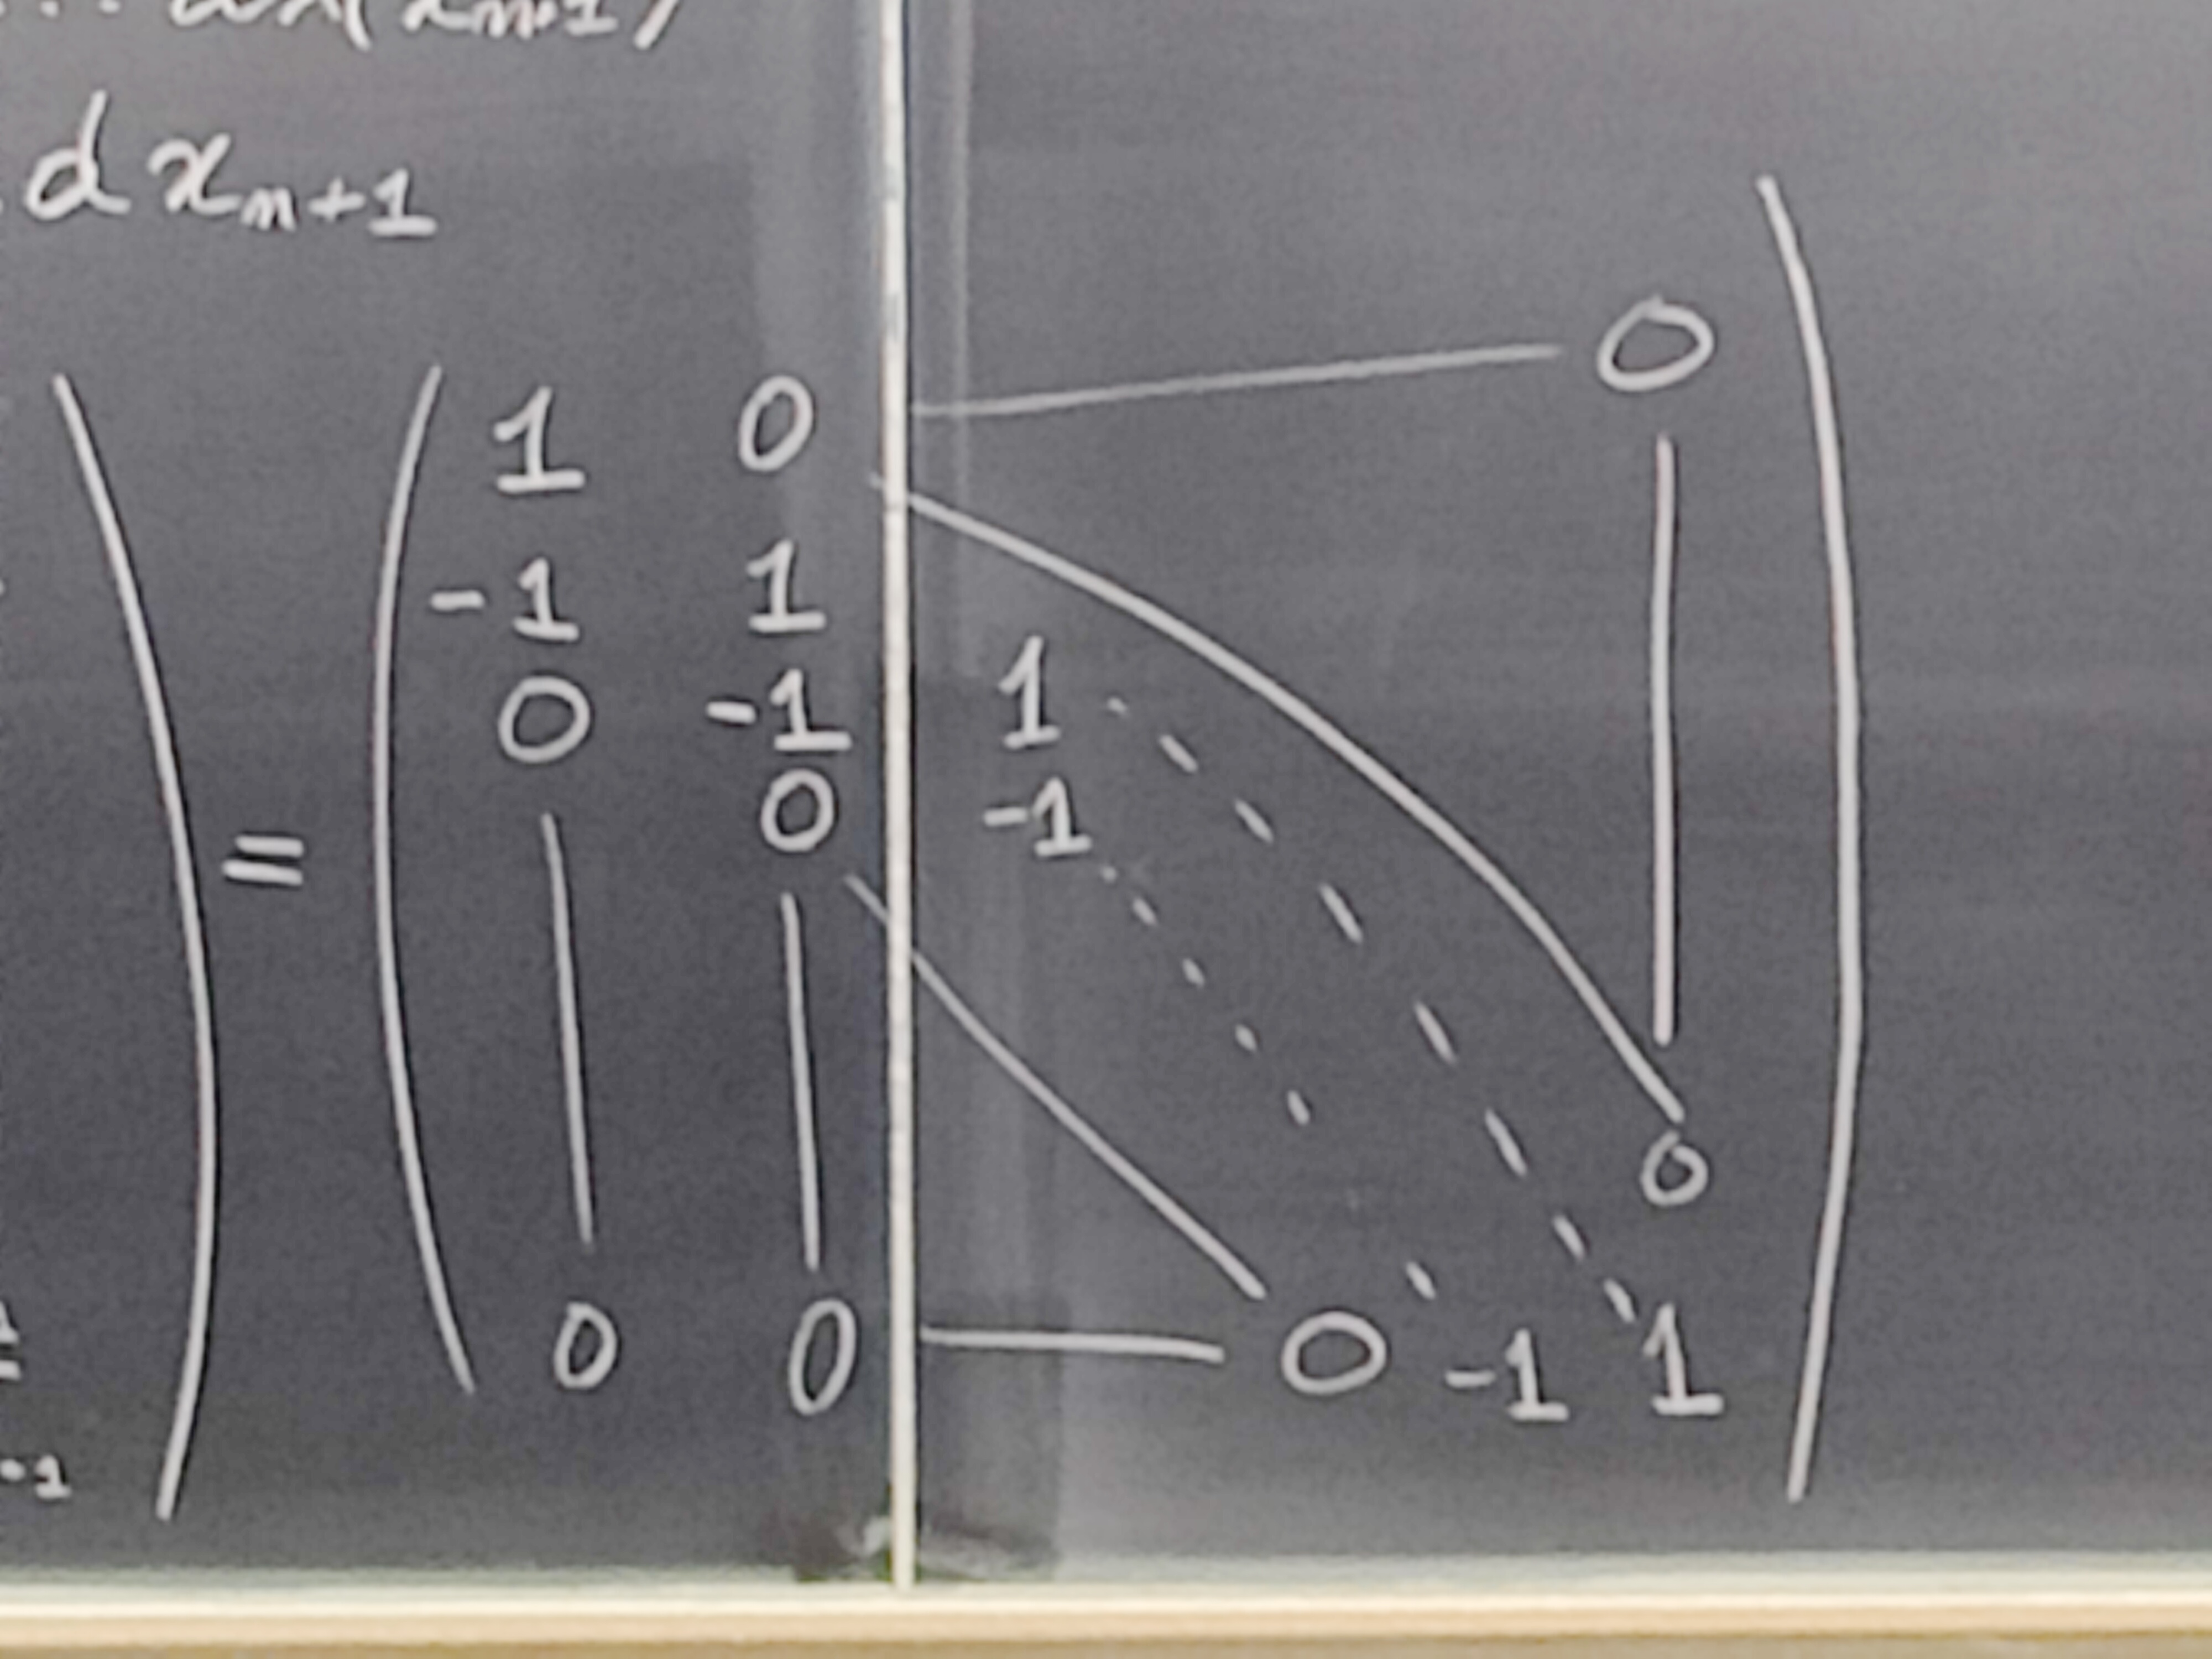 dx_{n+1}
= ( 1 0 — 0 )
-1 1
0 -1 1
0 -1
0
0 0 — 0 -1 1